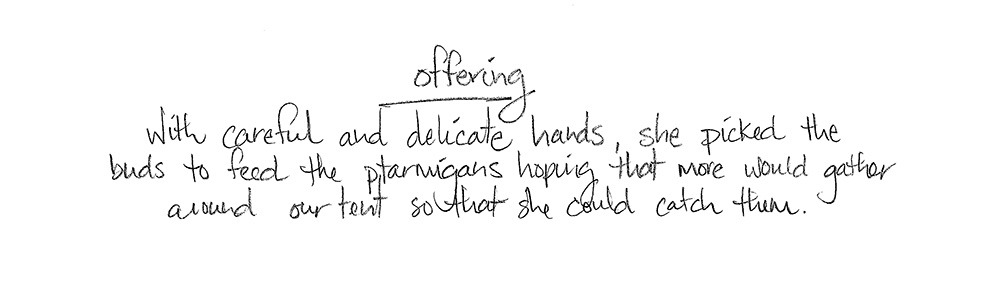 offering
With careful and delicate hands, she picked the
buds to feed the ptarmigans hoping that more would gather
around our tent so that she could catch them.